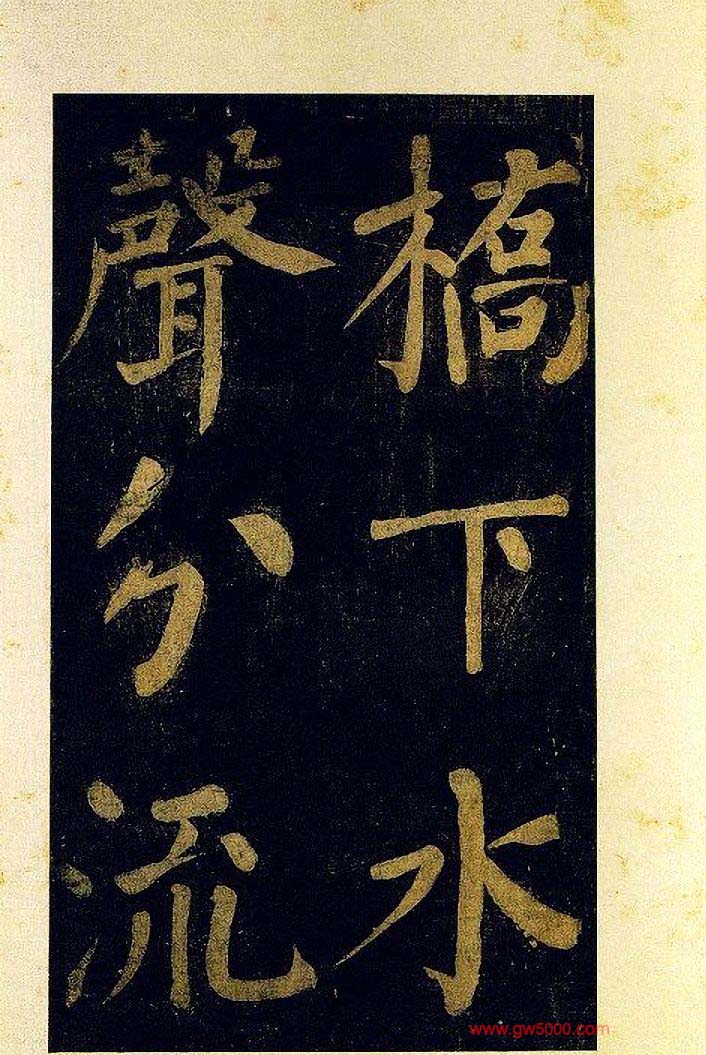 橋下水
聲分流
www.gw5000.com